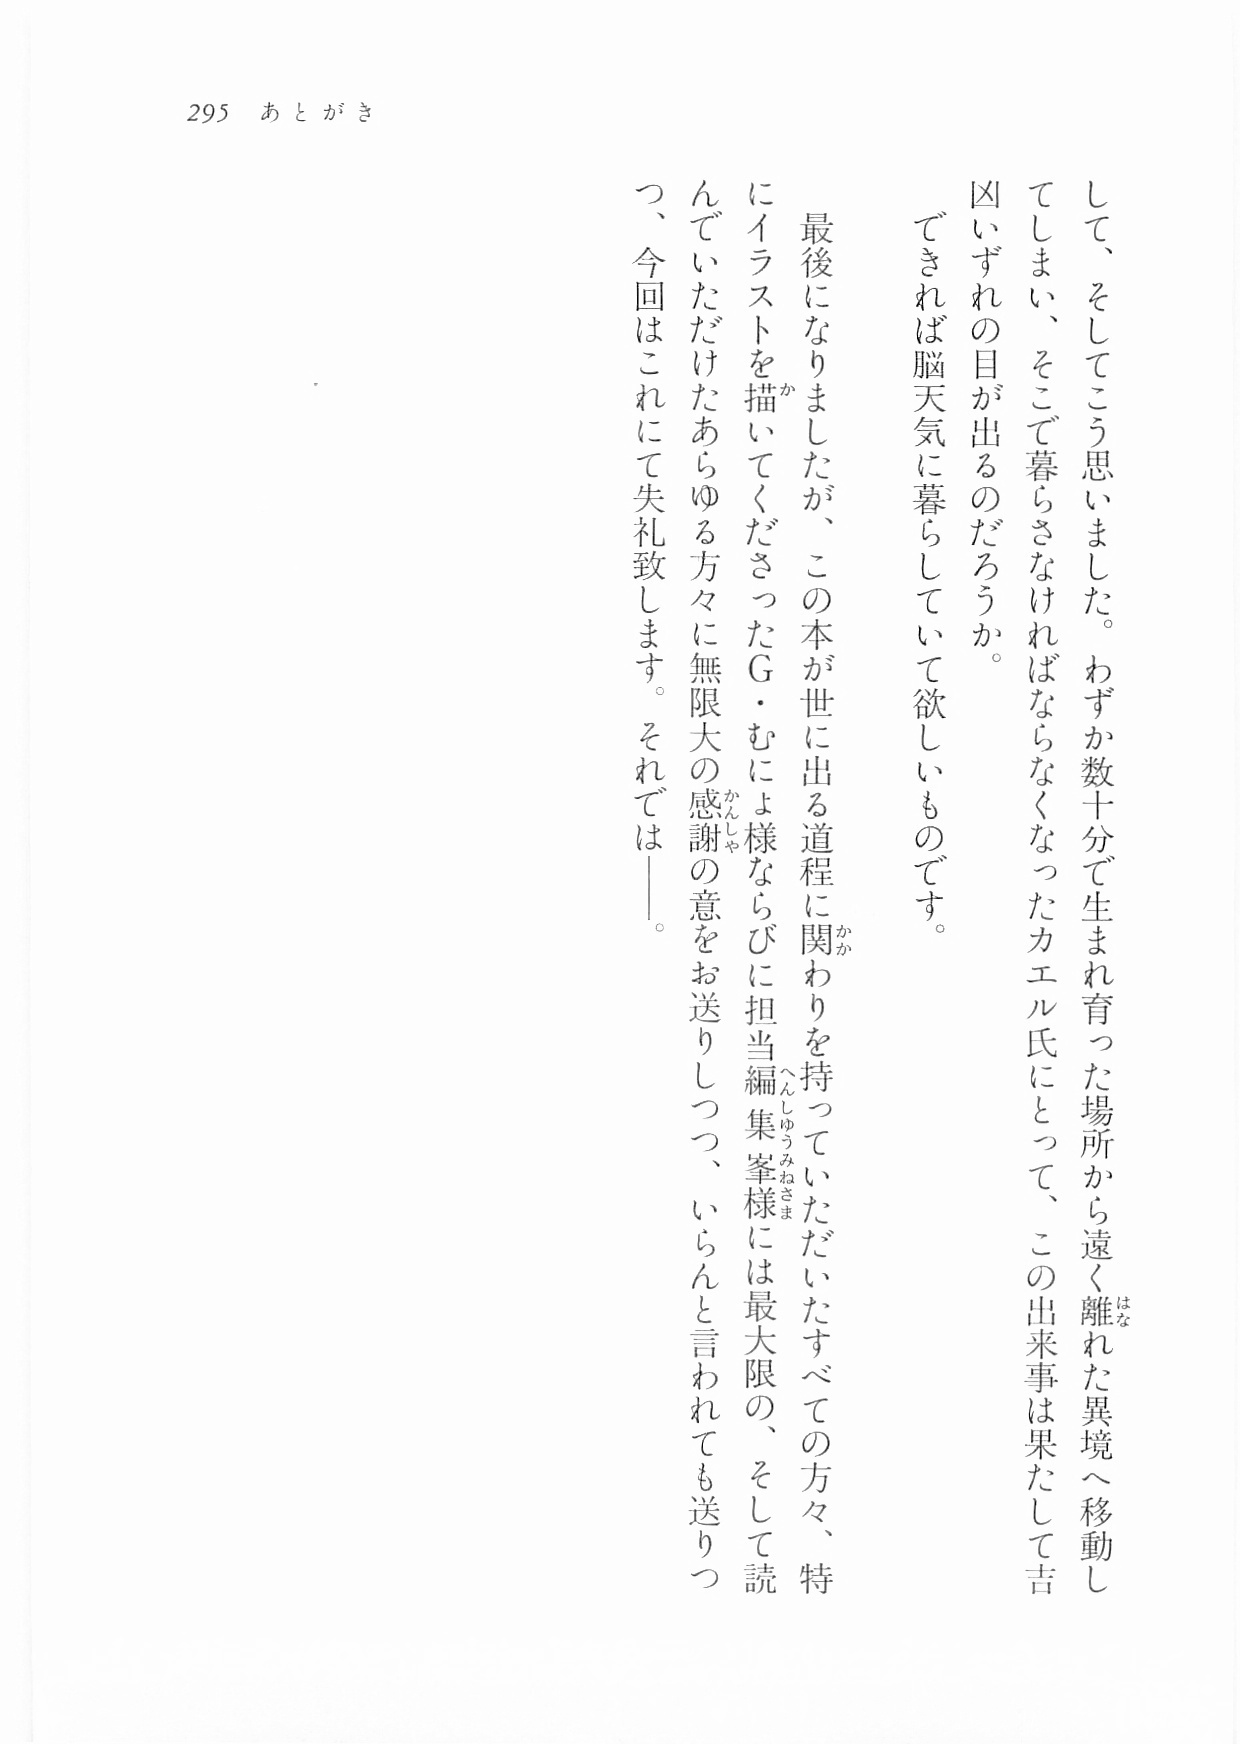 295 あとがき
して、そしてこう思いました。わずか数十分で生まれ育った場所から遠く離れた異境へ移動し
てしまい、そこで暮らさなければならなくなったカエル氏にとって、この出来事は果たして吉
凶いずれの目が出るのだろうか。
できれば脳天気に暮らしていて欲しいものです。
最後になりましたが、この本が世に出る道程に関わりを持っていただいたすべての方々、特
にイラストを描いてくださったG・むにょ様ならびに担当編集峯様には最大限の、そして読
んでいただけたあらゆる方々に無限大の感謝の意をお送りしつつ、いらんと言われても送りつ
つ、今回はこれにて失礼致します。それでは――。